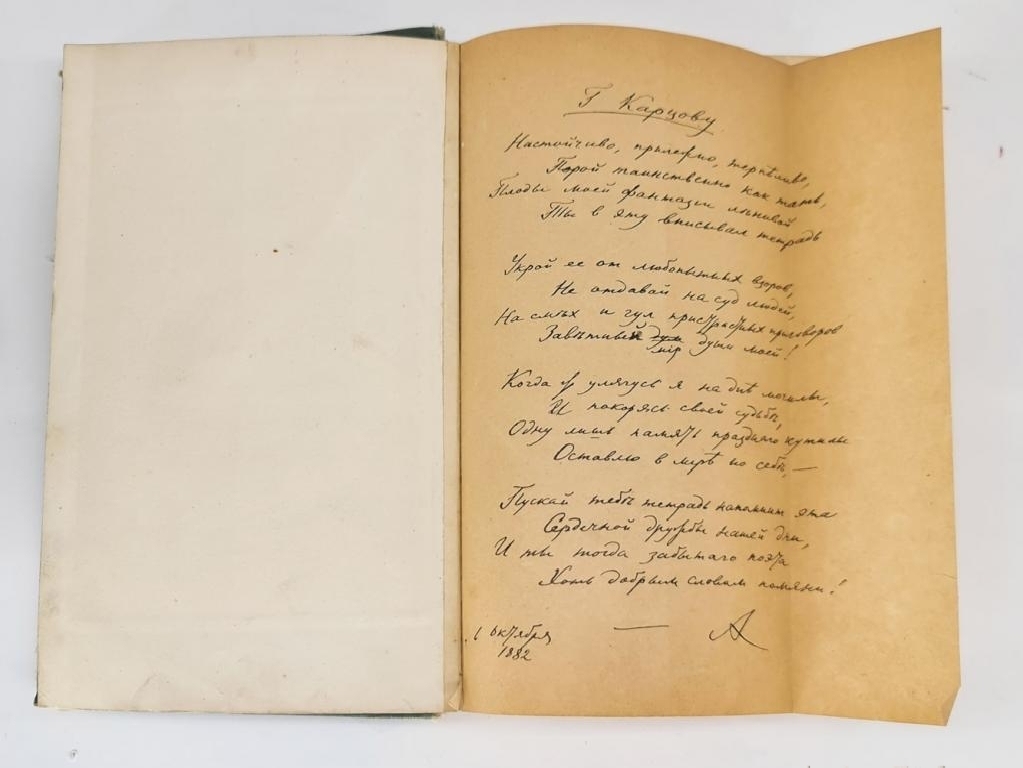 Г Карцову
Настойчиво, прилежно, терпѣливо,
Порой таинственно какъ тать,
Плоды моей фантазии лѣнивой
Ты в эту вписывал тетрадь
Укрой ее от любопытных взоров,
Не отдавай на суд людей,
На смѣх и гул пристрастных приговоров
Завѣтный мір души моей!
Когда улягусь я на днѣ могилы,
И покорясь своей судьбѣ,
Одну лишь память праздного кутилы
Оставлю в мірѣ по себѣ, —
Пускай тебѣ тетрадь напомнит эта
Сердечной дружбы нашей дни,
И ты тогда забытаго поэта
Хоть добрым словом помяни!
1 октября
1882
А